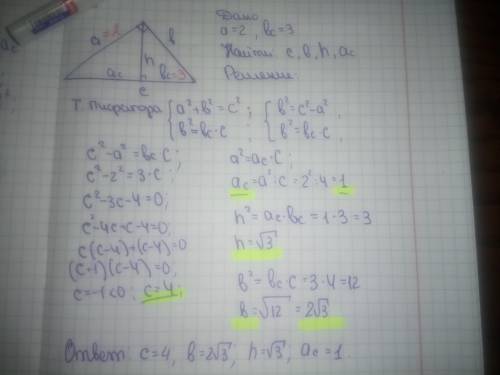 Дано
a=2, bc=3
Найти: c, b, h, ac
Решение:
a=2
b
h
ac
bc=3
c
Т. Пифагора { a²+b²=c²; { b²=c²-a²,
b²=bc·c b²=bc·c,
c²-a²=bc·c;
c²-2²=3·c;
c²-3c-4=0;
c²-4c+c-4=0;
c(c-4)+(c-4)=0
(c+1)(c-4)=0;
c=-1<0; c=4;
a²=ac·c;
ac=a²:c=2²:4=1
h²=ac·bc=1·3=3
h=√3
b²=bc·c=3·4=12
b=√12=2√3
Ответ: c=4, b=2√3; h=√3; ac=1.